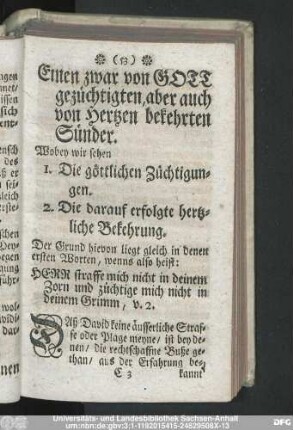 (53)
Einen zwar von GOTT
gezüchtigten, aber auch
von Hertzen bekehrten
Sünder.
Wobey wir sehen
1. Die göttlichen Züchtigun-
gen.
2. Die darauf erfolgte hertz-
liche Bekehrung.
Der Grund hievon liegt gleich in denen
ersten Worten, wenns also heist:
HERR straffe mich nicht in deinem
Zorn und züchtige mich nicht in
deinem Grimm, v. 2.
Daß David keine äusserliche Straf-
fe oder Plage meyne, ist bey de-
nen/ die rechtschaffne Buße ge-
than/ aus der Erfahrung be-
E 3 kannt
Universitäts- und Landesbibliothek Sachsen-Anhalt
urn:nbn:de:gbv:3:1-1192015415-24829508X-13
DFG